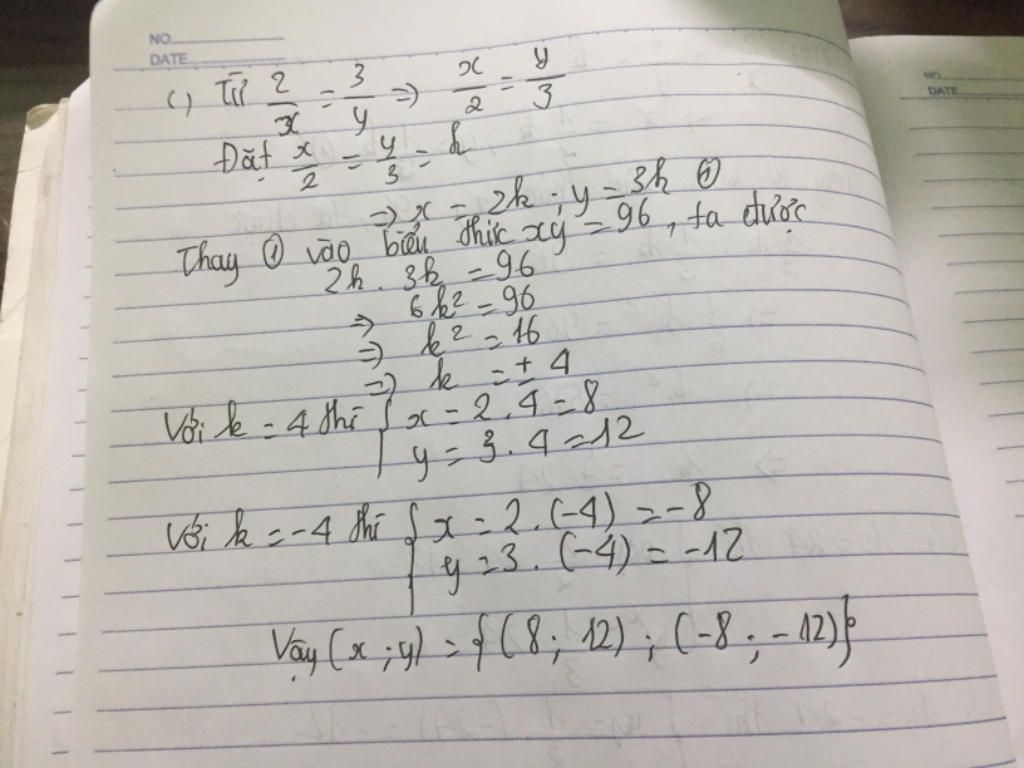 NO.
DATE
c) Từ 2/x = 3/y => x/2 = y/3
Đặt x/2 = y/3 = k
=> x = 2k ; y = 3k ①
Thay ① vào biểu thức xy = 96, ta được
2k . 3k = 96
=> 6k² = 96
=> k² = 16
=> k = ± 4
Với k = 4 thì { x = 2 . 4 = 8
y = 3 . 4 = 12
Với k = -4 thì { x = 2 . (-4) = -8
y = 3 . (-4) = -12
Vậy (x ; y) = {(8 ; 12) ; (-8 ; -12)}
NO.
DATE